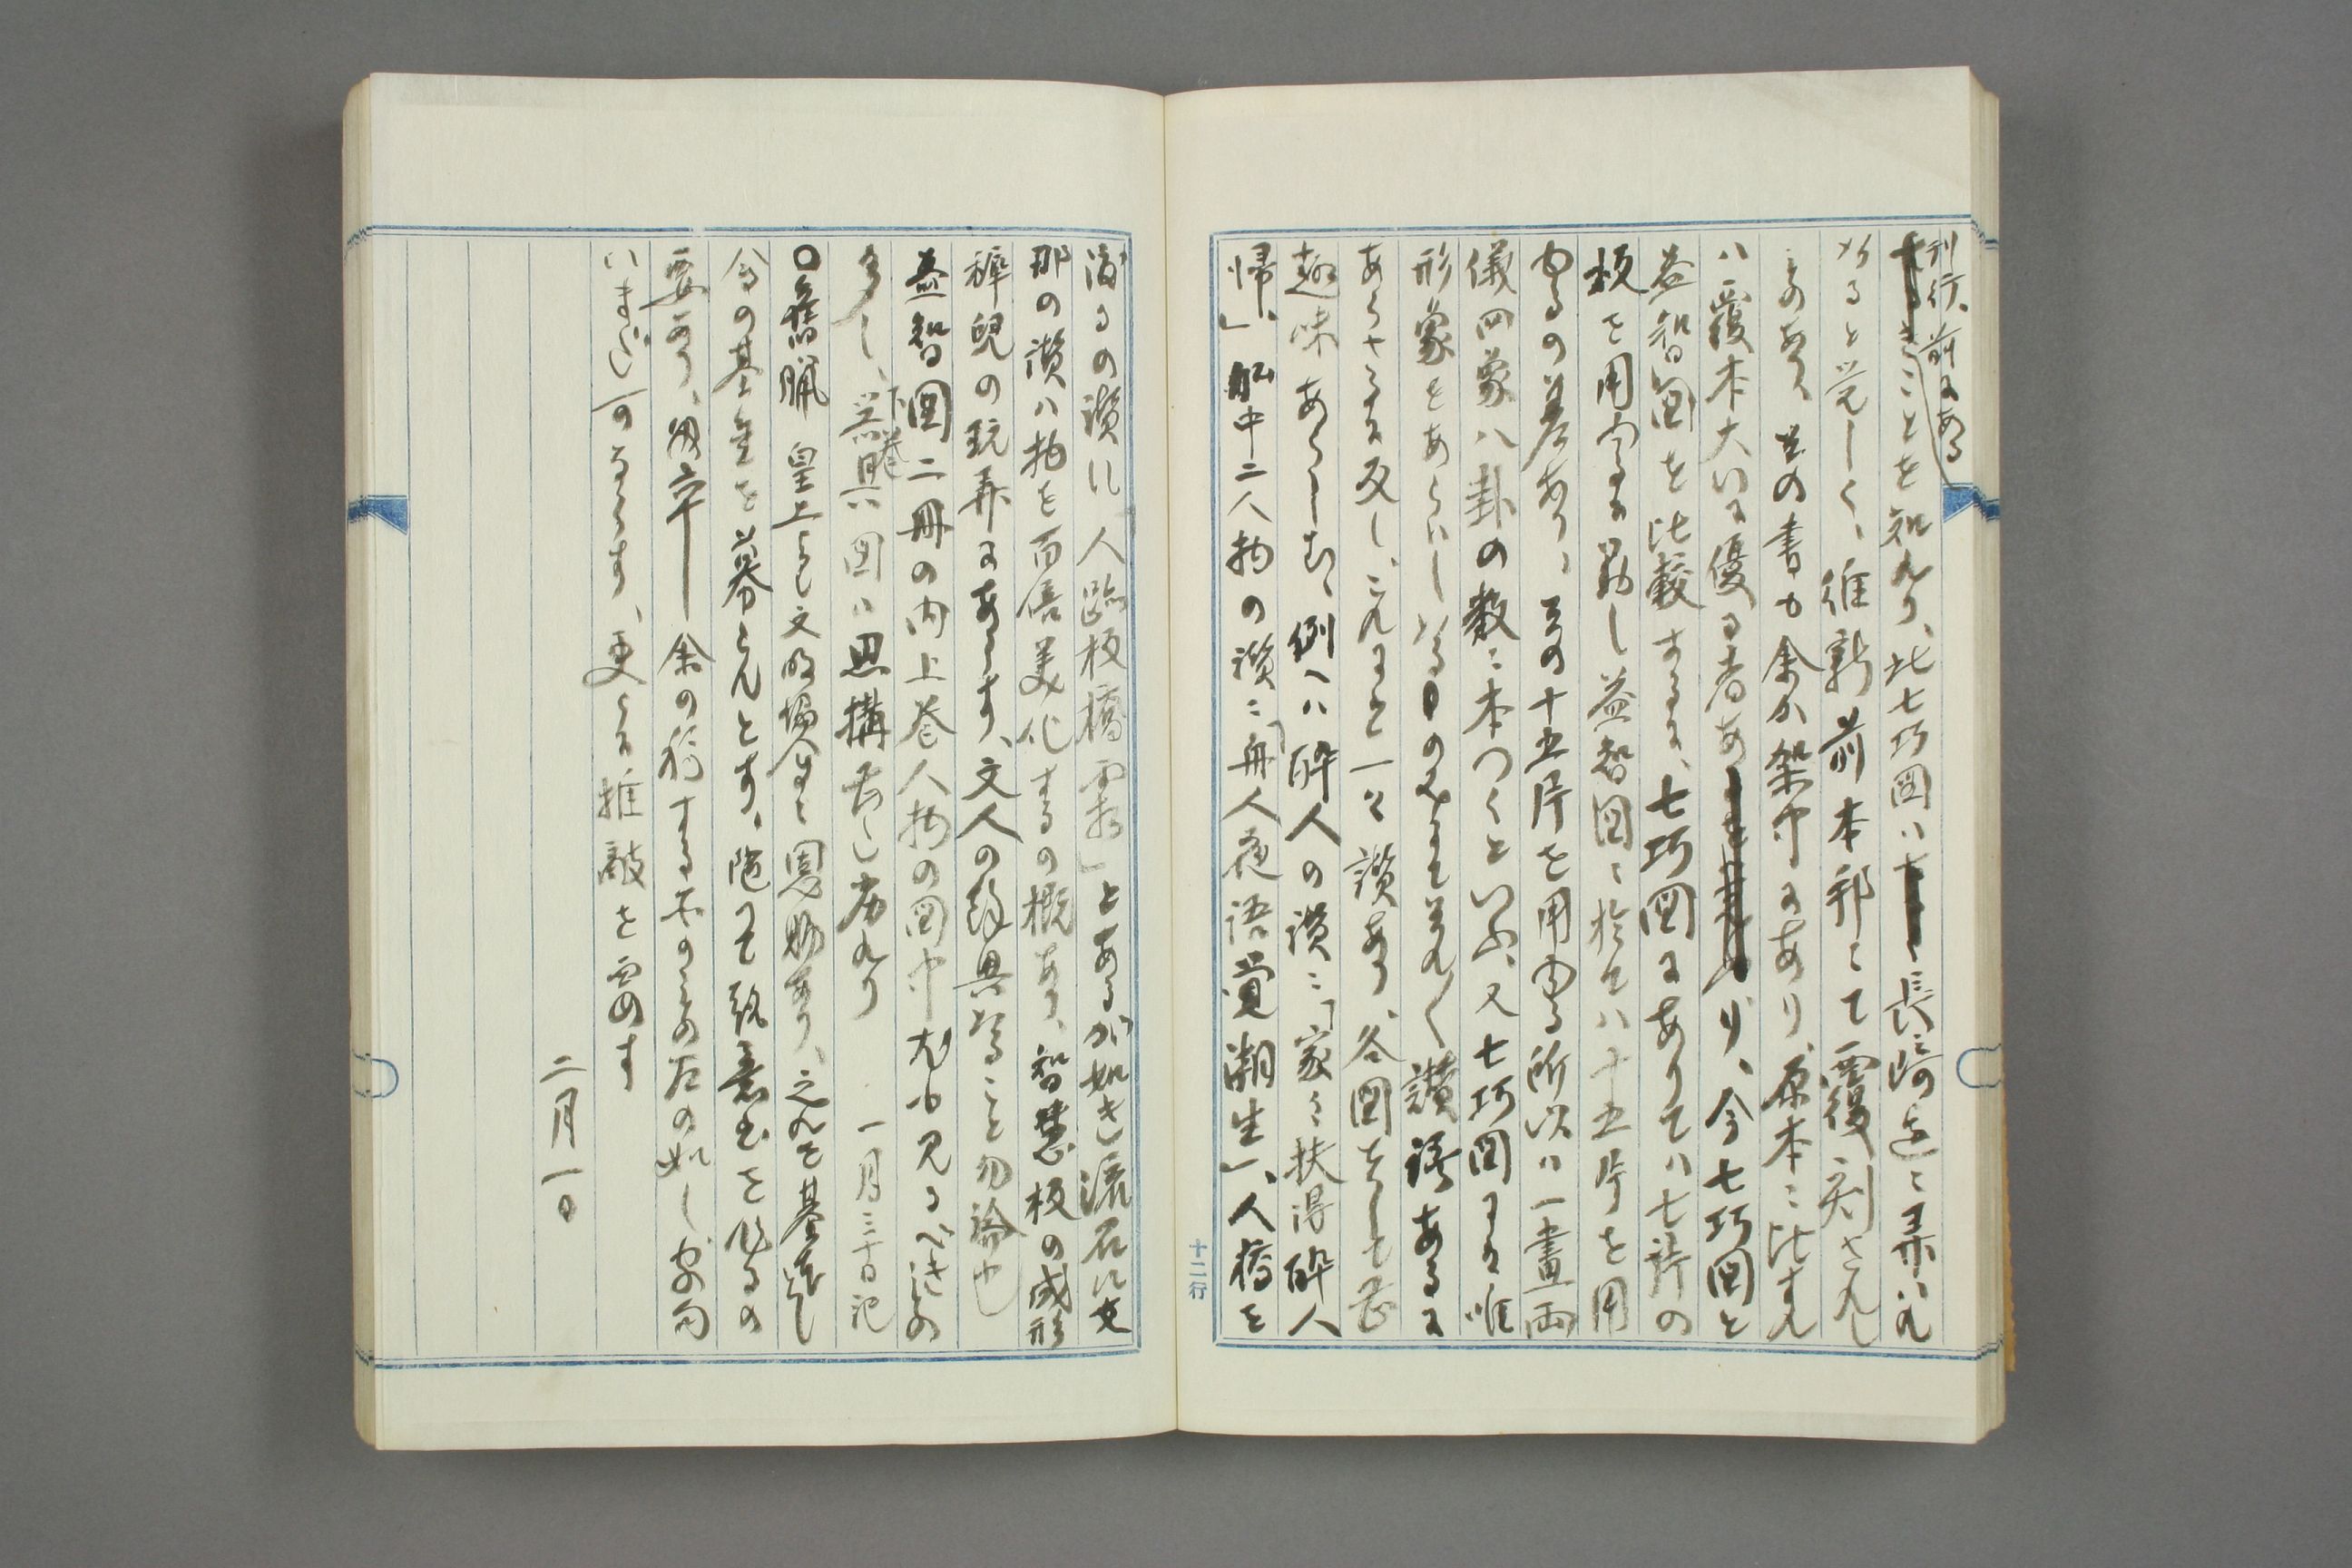 刊行、前にある
きことを知れり、此七巧図ハ長崎辺ニ弄ハれ
ハると覚しく、維新前本邦ニて覆刻され
しあり、其の書も余か架中にあり、原本ニ比すれ
ハ覆本大いに優る者あり、今七巧図と
益智図を比較するに、七巧図にありてハ七許の
板を用ふるに對し益智図ニ於てハ十五片を用
ゆるの差あり、その十五片を用ゆる所以ハ一畫両
儀四象八卦の数ニ本つくといふ、又七巧図にハ唯
形象をあらハしハるのミにて全く讃語あるに
あらさるに反し、これにハ一々讃あり、各図をして
趣味あらしむ、例ヘハ酔人の讃ニ「家々扶得酔人
帰、」船中二人物の讃ニ「舟人夜語覚潮生」、人橋を
渡るの讃に「人跡板橋霜」とあるが如き流石に支
那の讃ハ拘を百倍美化するの概あり、智慧板の成形
稗児の玩弄にあらす、文人の余興ハること勿論也
益智図二冊の内上巻人物の図中尤も見るべきもの
多し、下巻器具ハ図ハ思構甚し劣れり
一月三十日記
〇舊臘 皇上より文明協会に恩賜あり、之れを基礎とし
今の基金を募らんとす、随つて趣意書を作るの
要あり、匆卒余の稿するものもの左の如し、字句
いまだ可ならす、更らに推敲を要す
二月一日